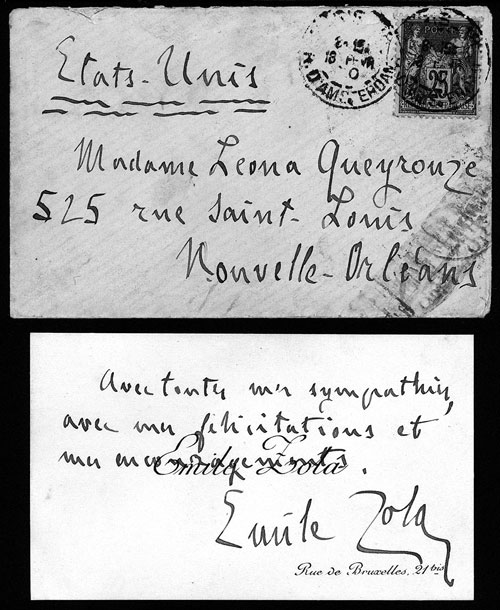 Etats-Unis
PARIS
R. D'AMSTERDAM
25
Madame Leona Queyrouze
525 rue Saint-Louis
Nouvelle-Orléans
Avec toutes mes sympathies,
avec mes félicitations et
mes encouragements.
Emile Zola
Emile Zola
Rue de Bruxelles, 21bis